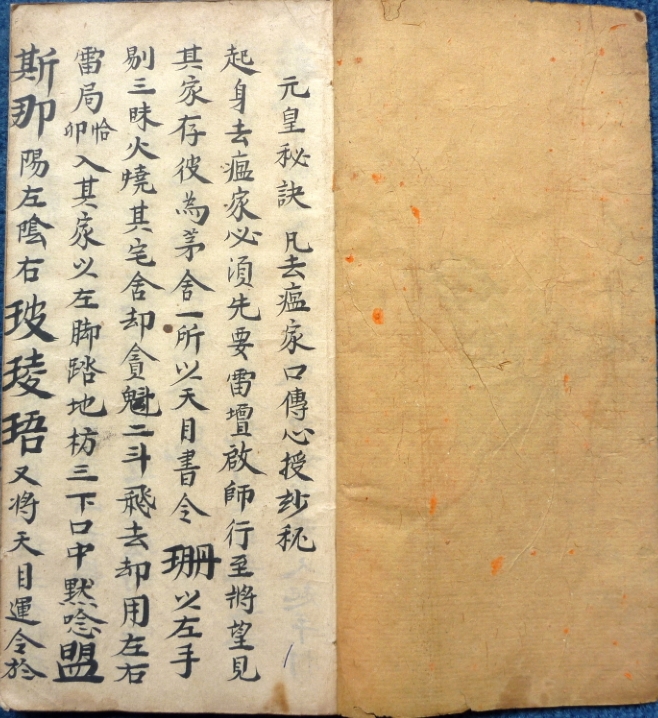 元皇秘訣 凡去瘟家口傳心授妙秘
起身去瘟家必須先要雷壇啟師行至將望見
其家存彼為茅舍一所以天目書令 珊 以左手
剔三昧火燒其宅舍却貪魁二斗飛去却用左右
雷局恰卯入其家以左脚踏地枋三下口中黙唸盟
斯那陽左陰右玻琖珸又將天目運令於